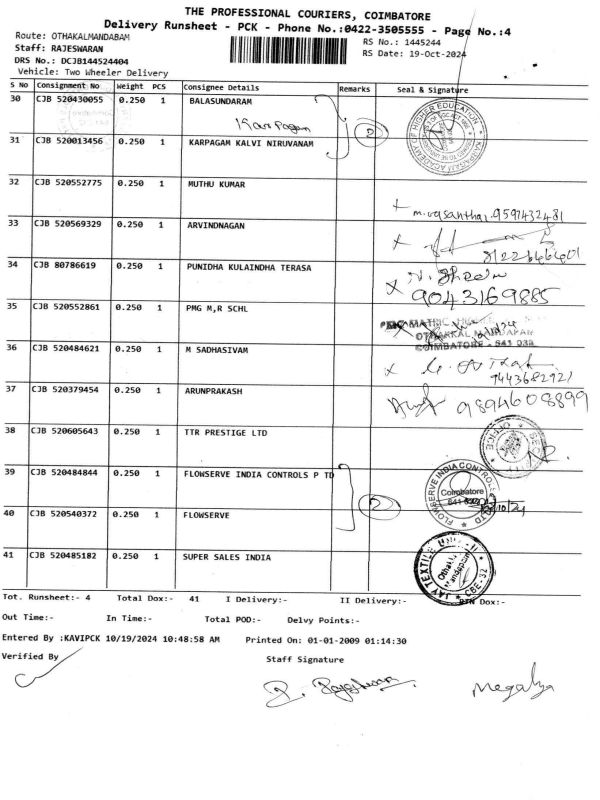 THE PROFESSIONAL COURIERS, COIMBATORE
Delivery Runsheet - PCK - Phone No.:0422-3505555 - Page No.:4
Route: OTHAKALMANDABAM
RS No.: 1445244
Staff: RAJESWARAN
RS Date: 19-Oct-2024
DRS No.: DCJB144524404
Vehicle: Two Wheeler Delivery
S No Consignment No Weight PCS Consignee Details Remarks Seal & Signature
30 CJB 520430055 0.250 1 BALASUNDARAM
Karpagam
2
31 CJB 520013456 0.250 1 KARPAGAM KALVI NIRUVANAM
KARPAGAM ACADEMY OF HIGHER EDUCATION
32 CJB 520552775 0.250 1 MUTHU KUMAR
m.vasanthai.9597432481
33 CJB 520569329 0.250 1 ARVINDNAGAN
34 CJB 80786619 0.250 1 PUNIDHA KULAINDHA TERASA
9043169885
35 CJB 520552861 0.250 1 PMG M,R SCHL
PMG MATRIC
OTHAKKAL MANDAPAM
COIMBATORE - 641 032
36 CJB 520484621 0.250 1 M SADHASIVAM
9443682921
37 CJB 520379454 0.250 1 ARUNPRAKASH
9894608899
38 CJB 520605643 0.250 1 TTR PRESTIGE LTD
39 CJB 520484844 0.250 1 FLOWSERVE INDIA CONTROLS P TD
2
FLOWSERVE INDIA CONTROLS
Coimbatore
40 CJB 520540372 0.250 1 FLOWSERVE
41 CJB 520485182 0.250 1 SUPER SALES INDIA
JAY TEXTILE UNIT-II
Othakkal
Mandapam
CBE-32
Tot. Runsheet:- 4 Total Dox:- 41 I Delivery:- II Delivery:- RTN Dox:-
Out Time:- In Time:- Total POD:- Delvy Points:-
Entered By :KAVIPCK 10/19/2024 10:48:58 AM Printed On: 01-01-2009 01:14:30
Verified By Staff Signature